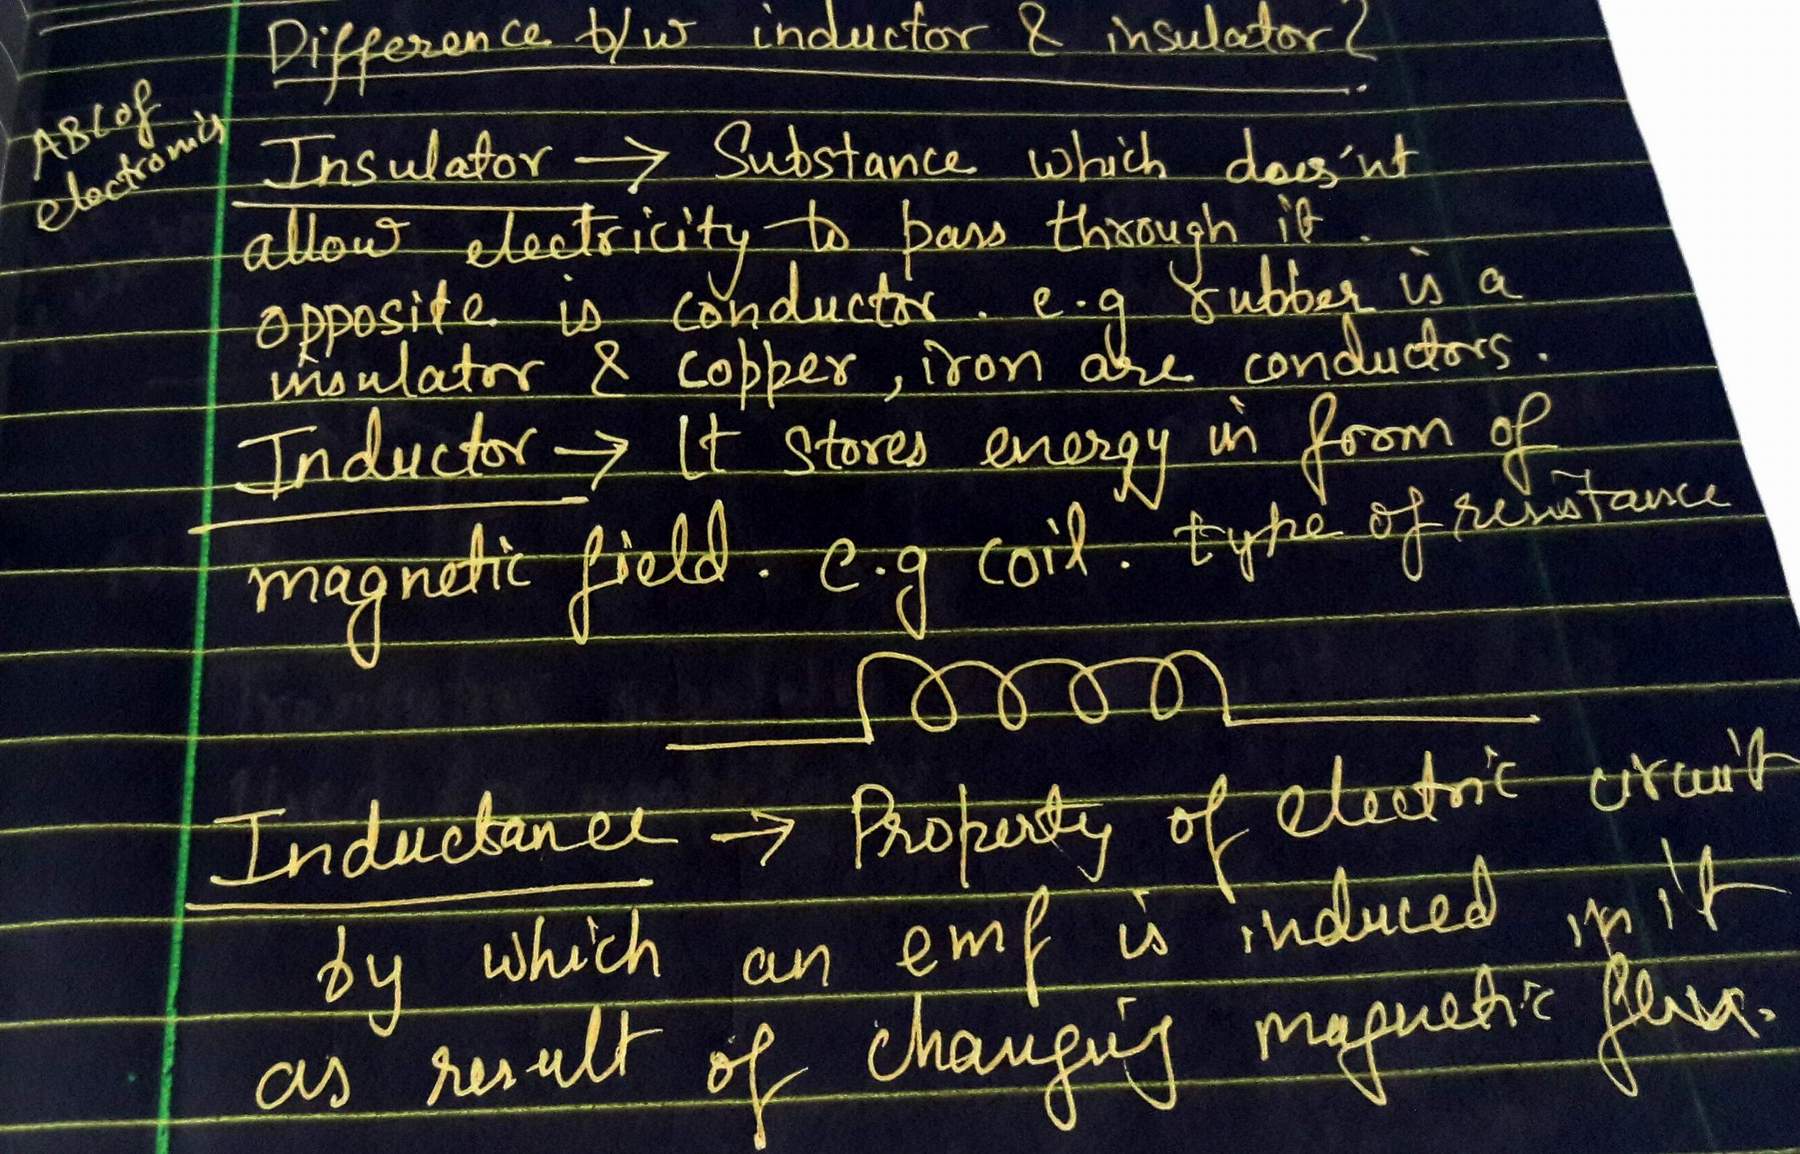 Difference b/w inductor & insulator?
ABC of
electronics
Insulator → Substance which does'nt
allow electricity to pass through it.
opposite is conductor. e.g rubber is a
insulator & copper, iron are conductors.
Inductor → It stores energy in form of
magnetic field. e.g coil. type of resistance
Inductance → Property of electric circuit
by which an emf is induced in it
as result of changing magnetic flux.